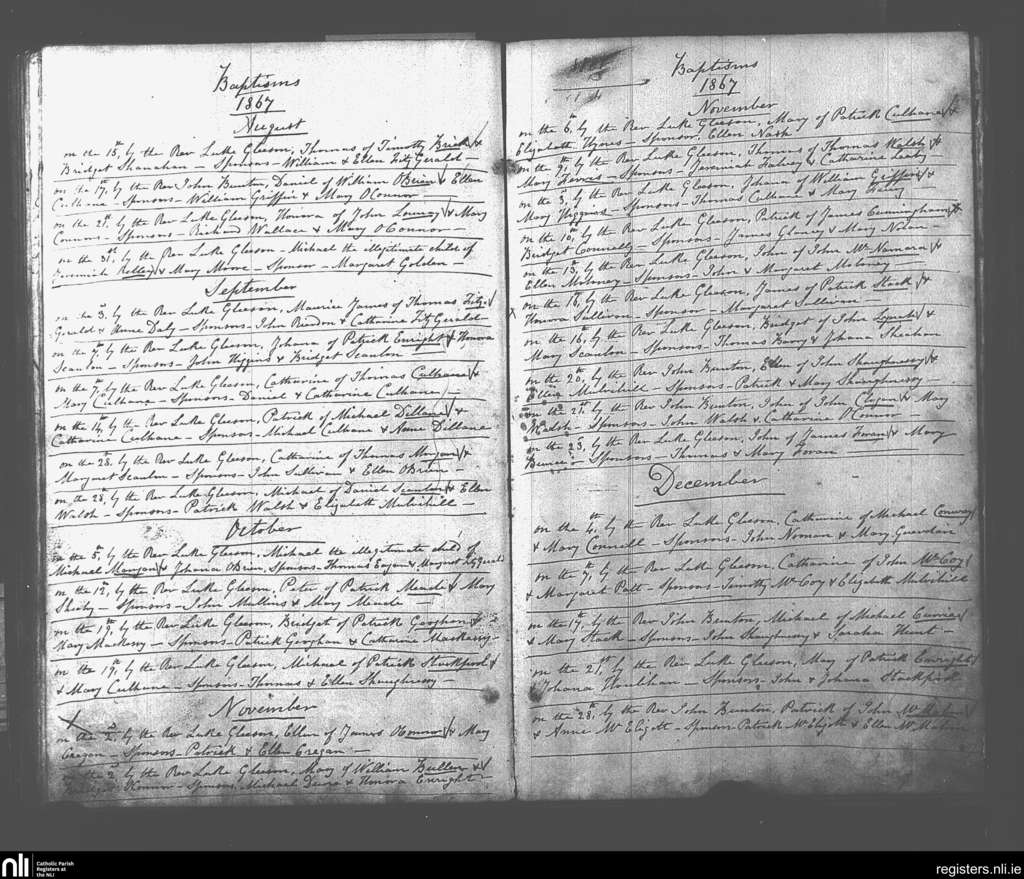 Baptisms
1867
August
on the 15th, by the Rev Luke Gleeson, Thomas of Timothy Brick &
Bridget Shanahan - Sponsors - William & Ellen Fitz Gerald -
on the 17th, by the Rev John Bunton, Daniel of William OBrien & Ellen
Culhane - Sponsors - William Griffin & Mary O'Connor -
on the 21st, by the Rev Luke Gleeson, Honora of John & Mary
Connors - Sponsors - Richard Wallace & Mary O'Connor -
on the 31st, by the Rev Luke Gleeson - Michael the illegitimate child of
Jeremiah Kelley & Mary Moore - Sponsor - Margaret Golden -
September
on the 3rd, by the Rev Luke Gleeson, Maurice James of Thomas Fitz-
Gerald & Anne Daly - Sponsors - John Riordon & Catharine Fitz Gerald -
on the 7th, by the Rev Luke Gleeson, Johana of Patrick Enright & Honora
Scanlon - Sponsors - John Higgins & Bridget Scanlon -
on the 7th, by the Rev Luke Gleeson, Catharine of Thomas Culhane &
Mary Culhane - Sponsors - Daniel & Catharine Culhane -
on the 14th, by the Rev Luke Gleeson, Patrick of Michael Dillane &
Catharine Culhane - Sponsors - Michael Culhane & Anne Dillane
on the 28th, by the Rev Luke Gleeson, Catharine of Thomas Mangan &
Margaret Scanlon - Sponsors - John Sullivan & Ellen OBrien -
on the 28th, by the Rev Luke Gleeson, Michael of Daniel Scanlan & Ellen
Walsh - Sponsors - Patrick Walsh & Elizabeth Mulvihill -
October
on the 5th, by the Rev Luke Gleeson, Michael the illegitimate child of
Michael Mangan & Johana OBrien, Sponsors - Thomas & Margaret Fitz Gerald
on the 12th, by the Rev Luke Gleeson, Peter of Patrick Meade & Mary
Sheehy - Sponsors - John Mullins & Mary Meade -
on the 19th, by the Rev Luke Gleeson, Bridget of Patrick Geoghan &
Mary Mackessy - Sponsors - Patrick Geoghan & Catharine Mackessy -
on the 19th, by the Rev Luke Gleeson, Michael of Patrick Stockpool &
& Mary Culhane - Sponsors - Thomas & Ellen Shaughnessy -
November
on the 2nd, by the Rev Luke Gleeson, Ellen of James OConnor & Mary
Cregan - Sponsors - Patrick & Ellen Cregan -
on the 2nd, by the Rev Luke Gleeson, Mary of William &
Bridget Connor - Sponsors, Michael & Honora Enright -
Baptisms
1867
November
on the 6th, by the Rev Luke Gleeson, Mary of Patrick Culhane &
Elizabeth Hynes - Sponsor, Ellen Nash
on the 9th, by the Rev Luke Gleeson, Thomas of Thomas Walsh &
Mary - Sponsors - Jeremiah Falvey & Catharine Leahy -
on the 3rd, by the Rev Luke Gleeson, Johana of William Griffin &
Mary Higgins - Sponsors - Thomas Culhane & Mary
on the 10th, by the Rev Luke Gleeson, Patrick of James Cunningham &
Bridget Connelly - Sponsors - James Glancy & Mary Nolan -
on the 13th, by the Rev Luke Gleeson, John of John McNamara &
Ellen Moloney - Sponsors - John & Margaret Moloney -
on the 16th, by the Rev Luke Gleeson, James of Patrick Stack &
Honora Sullivan - Sponsor - Margaret Sullivan -
on the 16th, by the Rev Luke Gleeson, Bridget of John Lynch &
Mary Scanlon - Sponsors - Thomas & Johana Sheehan
on the 20th, by the Rev John Bunton, Ellen of John Shaughnessy &
Mulvihill - Sponsors - Patrick & Mary Shaughnessy
on the 21st, by the Rev John Bunton, John of John & Mary
Walsh - Sponsors - John Walsh & Catharine O'Connor -
on the 23rd, by the Rev Luke Gleeson, John of James & Mary
- Sponsors - Thomas & Mary
December
on the 4th, by the Rev Luke Gleeson, Catharine of Michael Conway
& Mary Connell - Sponsors - John Noman & Mary Guerdon
on the 7th, by the Rev Luke Gleeson, Catharine of John McCoy
& Margaret Patt - Sponsors - Timothy McCoy & Elizabeth Mulvihill
on the 17th by the Rev John Bunton, Michael of Michael &
& Mary Stack - Sponsors - John Shaughnessy & Sarahan Hunt -
on the 21st, by the Rev Luke Gleeson, Mary of Patrick Enright &
Johana Houlihan - Sponsors - John & Johana Stackpool
on the 28th, by the Rev John Bunton, Patrick of John McMahon
& Anne McEligott - Sponsors Patrick McEligott & Ellen McMahon
nli
Catholic Parish
Registers at
the NLI
registers.nli.ie